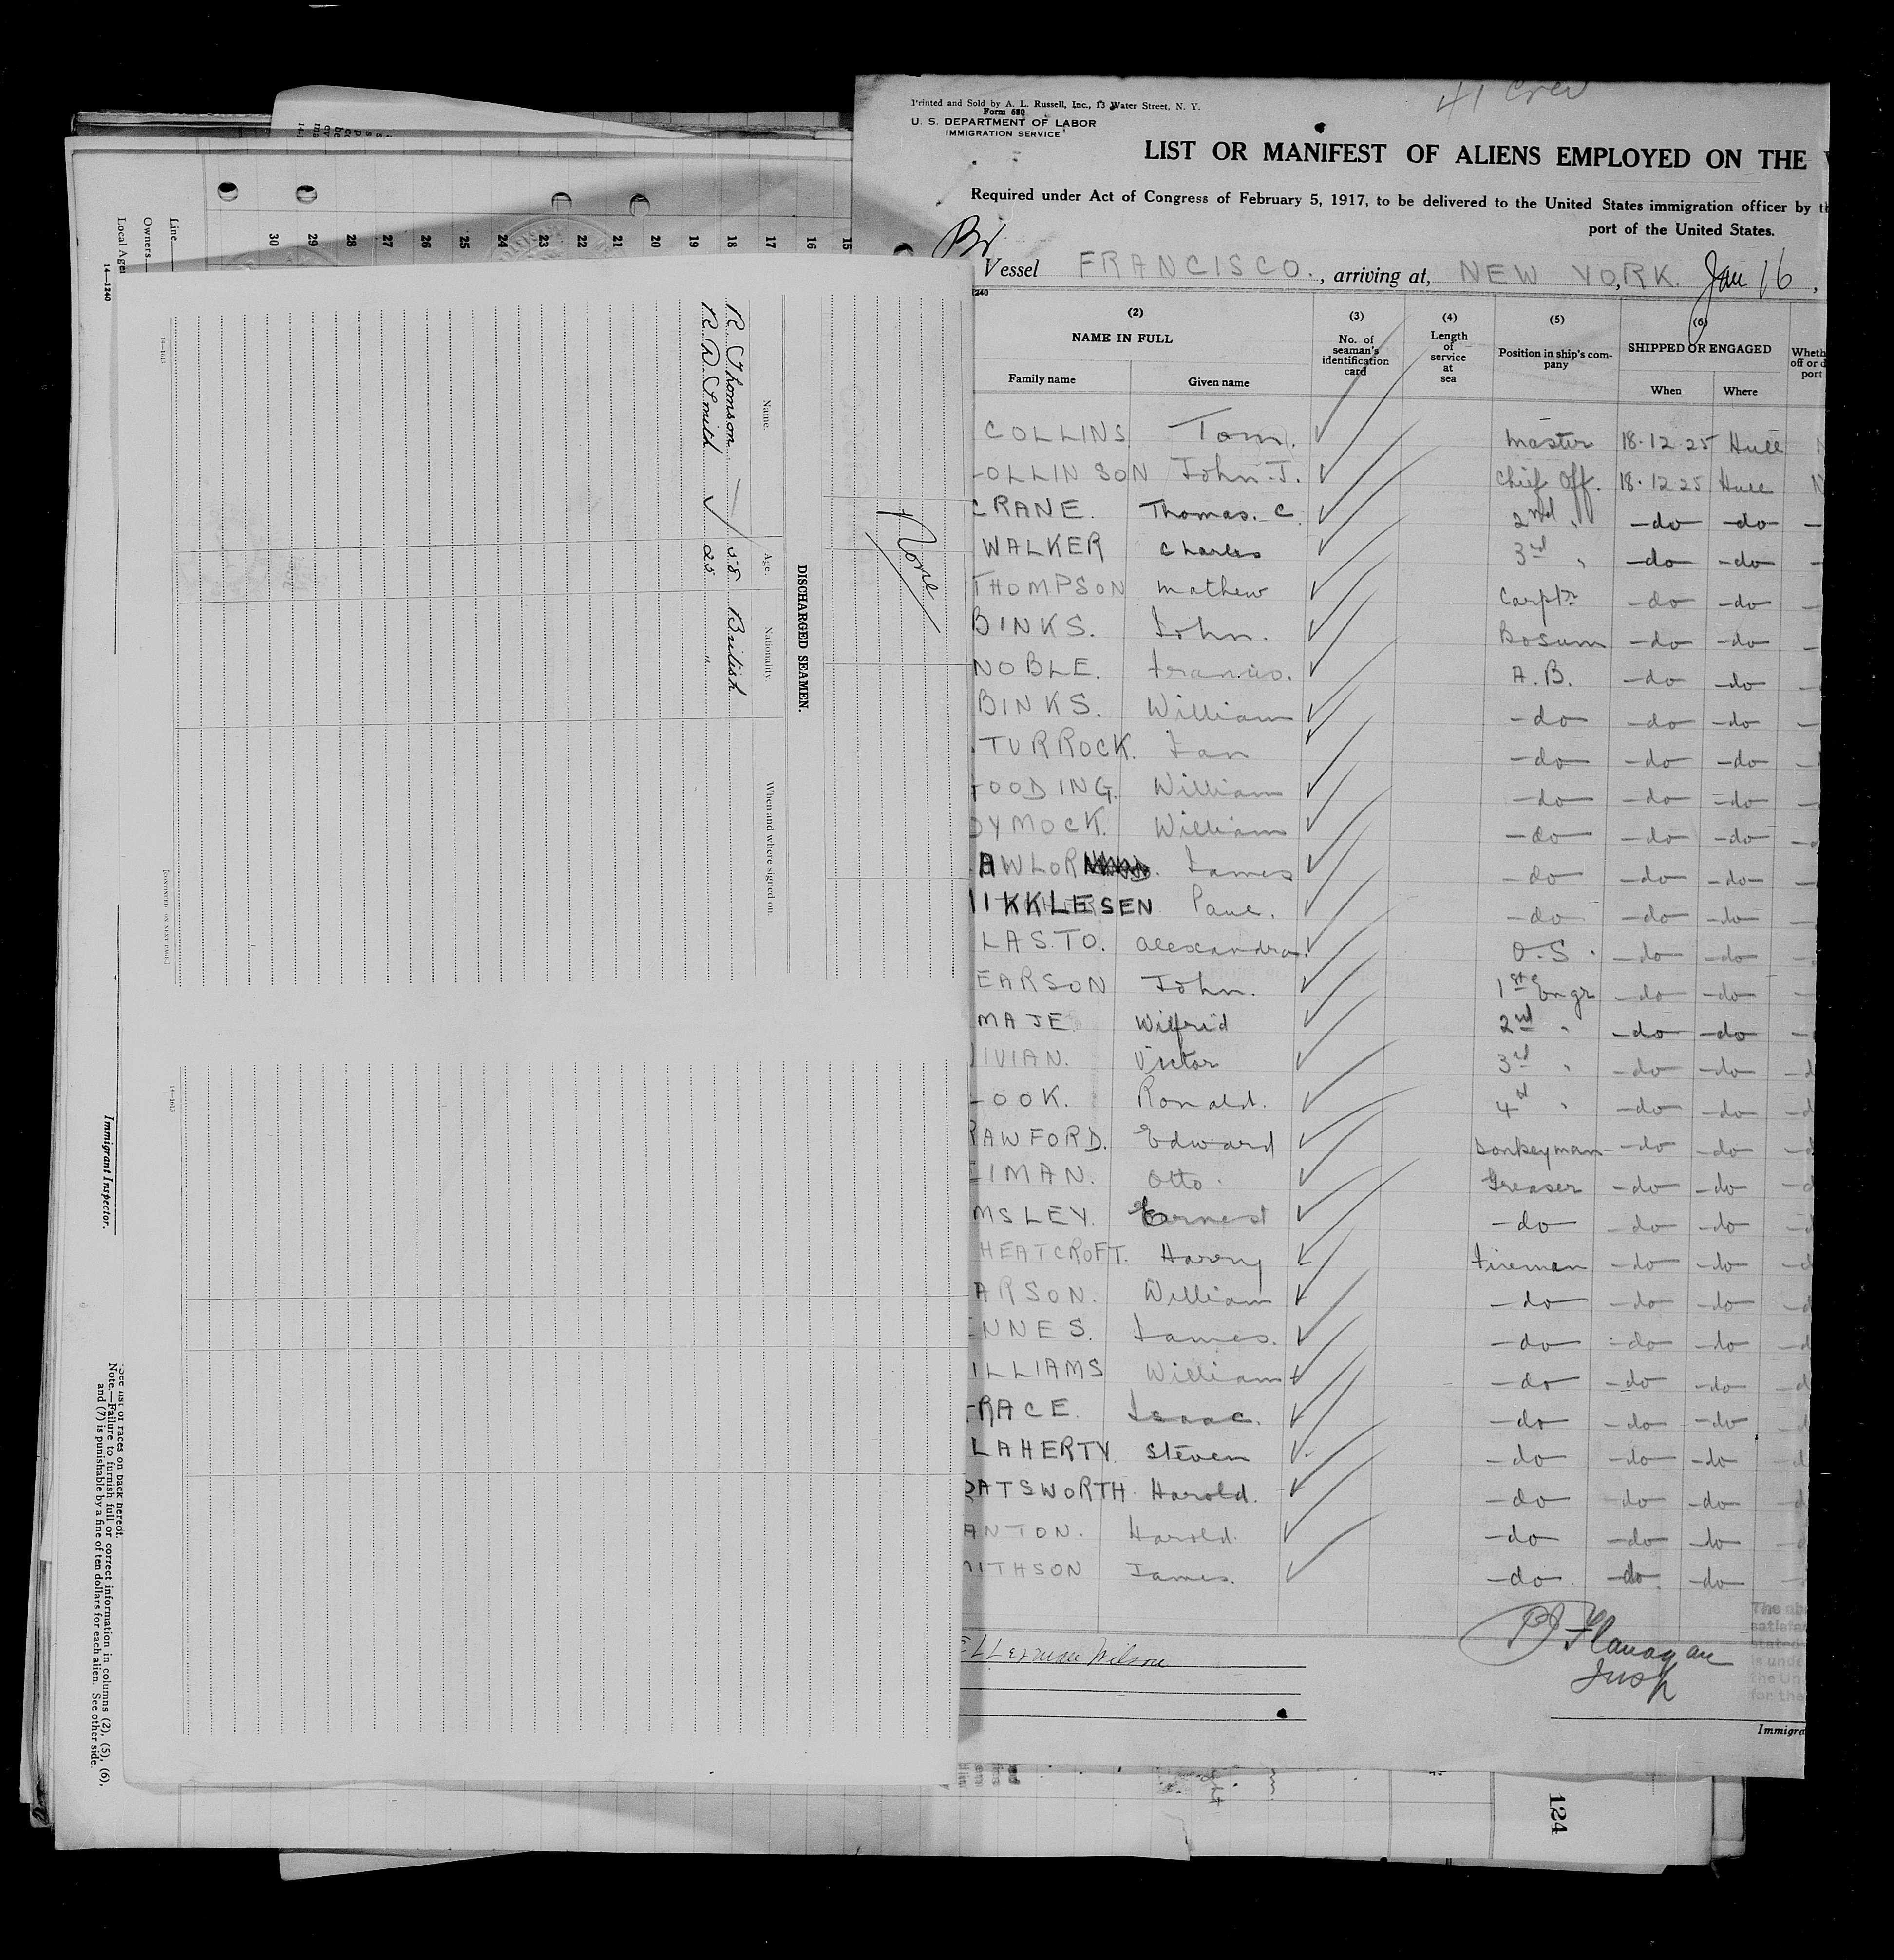 41 Crew
Printed and Sold by A. L. Russell, Inc., 13 Water Street, N. Y.
Form 680
U. S. DEPARTMENT OF LABOR
IMMIGRATION SERVICE
LIST OR MANIFEST OF ALIENS EMPLOYED ON THE
Required under Act of Congress of February 5, 1917, to be delivered to the United States immigration officer by
port of the United States.
Br
Vessel FRANCISCO. , arriving at, NEW YORK. Jan 16 ,
1240
(2) (3) (4) (5) (6)
NAME IN FULL No. of seaman's identification card Length of service at sea Position in ship's company SHIPPED OR ENGAGED
Family name Given name When Where
COLLINS Tom. Master 18-12-25 Hull
OLLINSON John. J. Chief Off. 18-12-25 Hull
CRANE. Thomas. C 2nd " -do -do
WALKER Charles 3rd " -do -do
THOMPSON Mathew Carptr -do -do
BINKS. John. Bosum -do -do
NOBLE. Francis. A.B. -do -do
BINKS. William -do -do -do
TURROCK. Ian -do -do -do
OODING. William -do -do -do
DYMOCK. William -do -do -do
AWLOR James -do -do -do
IKKLESEN Paul. -do -do -do
LASTO. Alexandra. O.S. -do -do
EARSON John. 1st Engr -do -do
MAJE Wilfrid 2nd " -do -do
IVIAN. Victor 3rd " -do -do
OOK. Ronald. 4th " -do -do
RAWFORD. Edward Donkeyman -do -do
IMAN. Otto. Greaser -do -do
MSLEY. Ernest -do -do -do
HEATCROFT. Harry Fireman -do -do
ARSON. William -do -do -do
NNES. James. -do -do -do
ILLIAMS William -do -do -do
RACE. Isaac. -do -do -do
LAHERTY. Steven -do -do -do
OATSWORTH Harold. -do -do -do
ANTON. Harold. -do -do -do
MITHSON James. -do -do -do
Ellerman Wilson
Flanagan
Insp
Immigra
124
Line
Owners
Local Agen
14—1240
30 29 28 27 26 25 24 23 22 21 20 19 18 17 16 15
None
DISCHARGED SEAMEN.
Name. Age. Nationality. When and where signed on.
R. Thomson 58 British
R. D. Smith 25 "
14—1613
[CONTINUED ON NEXT PAGE.]
14—1613
Immigrant Inspector.
See list of races on back hereof.
Note.—Failure to furnish full or correct information in columns (2), (5), (6),
and (7) is punishable by a fine of ten dollars for each alien. See other side.